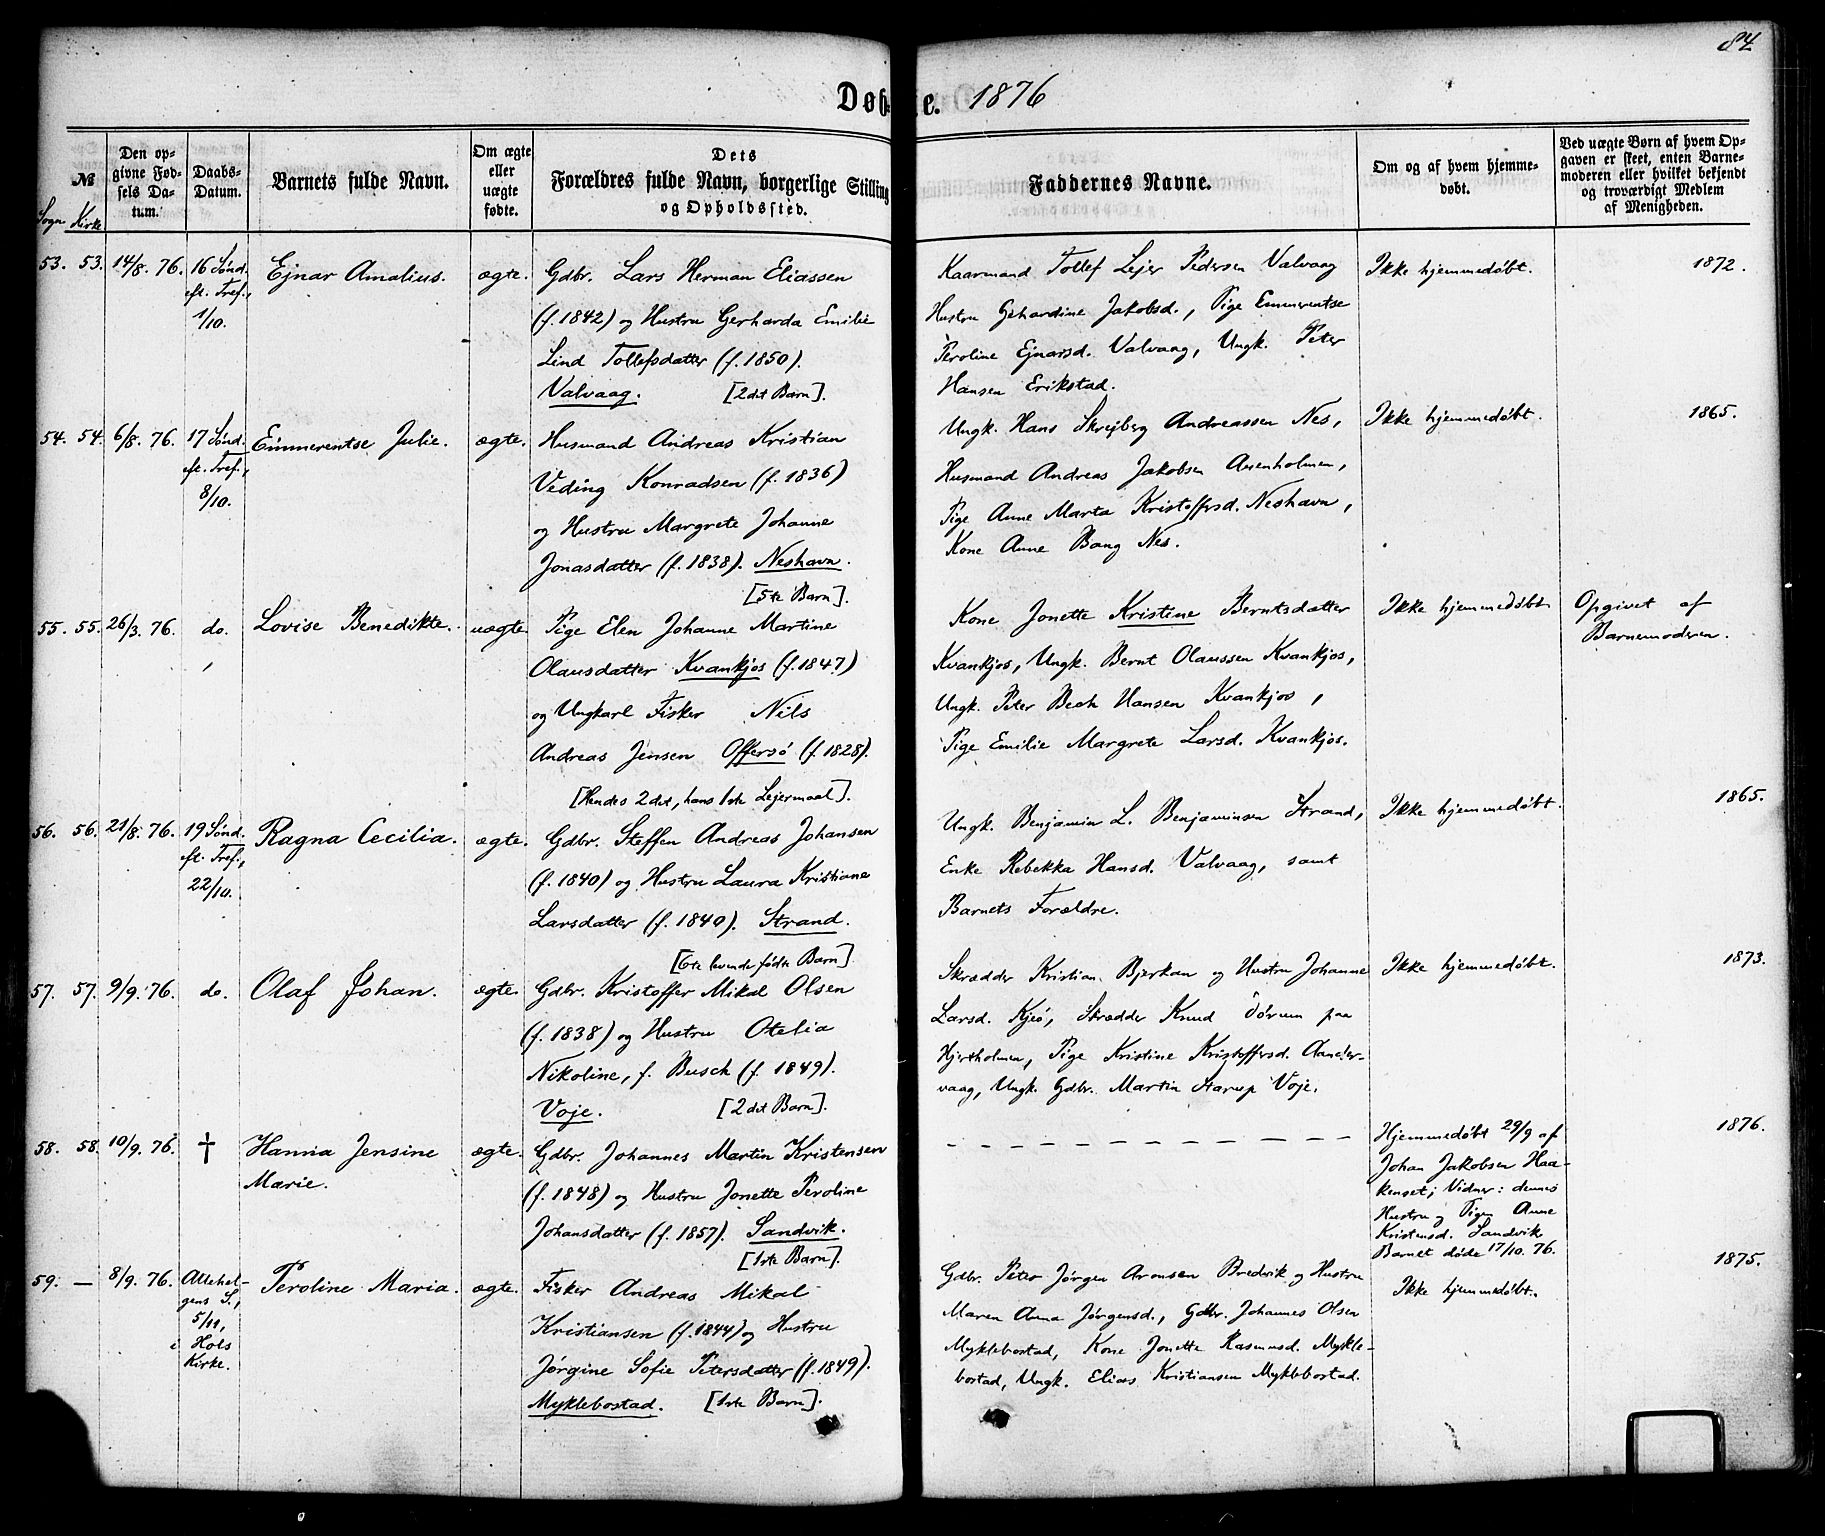 84
Døb-te. 1876
№
Sogn Kirke
Den op-
givne Fød-
sels Da-
tum.
Daabs-
Datum.
Barnets fulde Navn.
Om ægte
eller
uægte
fødte.
Dets
Forældres fulde Navn, borgerlige Stilling
og Opholdssted.
Faddernes Navne.
Om og af hvem hjemme-
døbt.
Ved uægte Børn af hvem Op-
gaven er skeet, enten Barne-
moderen eller hvilket bekjendt
og troværdigt Medlem
af Menigheden.
53. 53. 14/8. 76. 16 Sønd.
eft. Tref.,
1/10.
Ejnar Amalius. ægte.
Gdbr. Lars Herman Eliassen
(f. 1842) og Hustru Gerharda Emilie
Lind Tollefsdatter (f. 1850).
Valvaag. [2det Barn].
Kaarmand Tollef Lejer Pedersen Valvaag
Hustru Gehardine Jakobsd., Pige Emmerentse
Peroline Ejnarsd. Valvaag, Ungk. Peter
Hansen Erikstad.
Ikke hjemmedøbt.
1872.
54. 54. 6/8. 76. 17 Sønd.
eft. Tref.,
8/10.
Emmerentse Julie. ægte.
Husmand Andreas Kristian
Veding Konradsen (f. 1836)
og Hustru Margrete Johanne
Jonasdatter (f. 1838). Neshavn.
[5te Barn].
Ungk. Hans Skrejberg Andreassen Nes,
Husmand Andreas Jakobsen Auenholmen,
Pige Anne Marta Kristoffersd. Neshavn,
Kone Anne Bang Nes.
Ikke hjemmedøbt.
1865.
55. 55. 26/3. 76. do.
Lovise Benedikte. uægte.
Pige Elen Johanne Martine
Olausdatter Kvankjos (f. 1847)
og Ungkarl Fisker Nils
Andreas Jensen Offersø (f. 1828).
[Hendes 2det, hans 1ste Lejermaal].
Kone Jonette Kristine Berntsdatter
Kvankjos, Ungk. Bernt Olaussen Kvankjos,
Ungk. Peter Bech Hansen Kvankjos,
Pige Emilie Margrete Larsd. Kvankjos.
Ikke hjemmedøbt.
Opgivet af
Barnemoderen.
56. 56. 21/8. 76. 19 Sønd.
eft. Tref.,
22/10.
Ragna Cecilia. ægte.
Gdbr. Steffen Andreas Johansen
(f. 1840) og Hustru Laura Kristiane
Larsdatter (f. 1840). Strand.
[6te levende fødte Barn].
Ungk. Benjamin L. Benjaminsen Strand,
Enke Rebekka Hansd. Valvaag, samt
Barnets Forældre.
Ikke hjemmedøbt.
1865.
57. 57. 9/9. 76. do.
Olaf Johan. ægte.
Gdbr. Kristoffer Mikal Olsen
(f. 1838) og Hustru Otelia
Nikoline, f. Busch (f. 1849).
Voje. [2det Barn].
Skrædder Kristian Bjerkan og Hustru Johanne
Larsd. Kjeø, Skrædder Knud Idørum paa
Hjertholmen, Pige Kristine Kristoffersd. Aander-
vaag, Ungk. Gdbr. Martin Aarup Voje.
Ikke hjemmedøbt.
1873.
58. 58. 10/9. 76. †
Hanna Jensine
Marie.
ægte.
Gdbr. Johannes Martin Kristensen
(f. 1848) og Hustru Jonette Peroline
Johansdatter (f. 1857). Sandvik.
[1ste Barn].
— — — — — — — — — — — —
Hjemmedøbt 29/9 af
Johan Jakobsen Haa-
kenset; Vidner: dennes
Hustru og Pigen Anne
Kristensd. Sandvik
Barnet døde 17/10. 76.
1876.
59. — 8/9. 76. Allehel-
gens S.,
5/11,
i Hols
Kirke.
Peroline Maria. ægte.
Fisker Andreas Mikal
Kristiansen (f. 1844) og Hustru
Jørgine Sofie Petersdatter (f. 1849).
Myklebostad. [1ste Barn].
Gdbr. Peter Jørgen Aronsen Bredvik og Hustru
Maren Anna Jørgensd., Gdbr. Johannes Olsen
Myklebostad, Kone Jonette Rasmusd. Mykle-
bostad, Ungk. Elias Kristiansen Myklebostad.
Ikke hjemmedøbt.
1875.